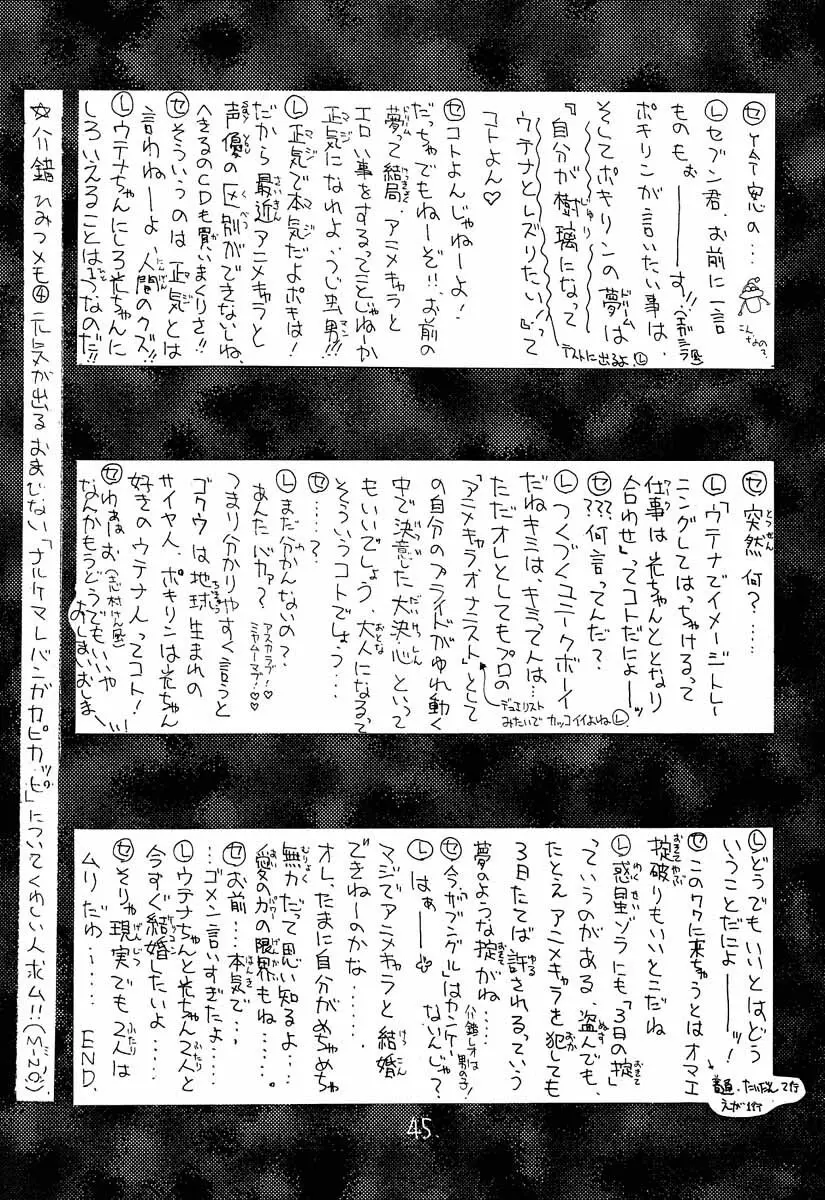 ㋝ 今窓の…
こんなの?
Ⓛ セブン君、お前に一言
ものもぉーーーす!!
ポキリンが言いたい事は、
そしてポキリンの夢は
『自分が樹璃になって
ウテナとレズりたい!』って
コトよん♡
テストに出るよ。Ⓛ
㋝ コトよんじゃねーよ!
だっちゃでもねーぞ!!、お前の
夢って結局、アニメキャラと
エロい事をするってことじゃねーか
正気になれよ、うじ虫男!!!
Ⓛ 正気で本気だよポキは!
だから最近アニメキャラと
声優の区別ができないしね、
へきるのCDも買いまくりさ!!
㋝ そういうのは正気とは
言わねーよ、人間のクズ!!
Ⓛ ウテナちゃんにしろ光ちゃんに
しろいえることは1つなのだ!!
㋝ 突然何?……
Ⓛ「ウテナでイメージトレー
ニングしてはっちゃけるって
仕事は光ちゃんととなり
合わせ」ってコトだによーーッ
㋝ ???何言ってんだ?
Ⓛ つくづくユニークボーイ
だねキミは、キミって人は…
ただオレとしてもプロの
「アニメキャラオナニスト」として
デュエリスト
みたいでカッコイイよねⓁ
の自分のプライドがゆれ動く
中で決意した大決心といって
もいいでしょう、大人になるって
そういうコトでしょう…
㋝ ……?
Ⓛ まだ分かんないの?
あんたバカァ?
アスカラブ!♡
ミヤムーマブ!♡♡
つまり分かりやすく言うと
ゴクウは地球生まれの
サイヤ人、ポキリンは光ちゃん
好きのウテナ人ってコト!
㋝ わぁぁお(志村けん風)
なんかもうどうでもいいや
おしまいおしまい
Ⓛ どうでもいいとはどう
いうことだによーーッ!
㋝ このワクに来ちゃうとはオマエ
掟破りもいいとこだね
Ⓛ 惑星ゾラにも「3日の掟」
っていうのがある、盗んでも、
たとえアニメキャラを犯しても
3日たてば許されるっていう
夢のような掟がね…
㋝ 今「ザブングル」はカンケー
ないんじゃ?
Ⓛ はぁーー
介錯レオは
男の子!
マジでアニメキャラと結婚
できねーのかな……
オレ、たまに自分がめちゃめちゃ
無力だって思い知るよ…
愛の力の限界もね……。
㋝ お前…本気で…、
…ゴメン言いすぎたよ…
Ⓛ ウテナちゃんと光ちゃん2人と
今すぐ結婚したいよ……
㋝ そりゃ現実でも2人は
ムリだゆ、…… END.
☆介錯ひみつメモ④ 元気が出るおまじない「ナルケマレバンガカピカッピ」についてくわしい人求ム!!(M-20)
45.